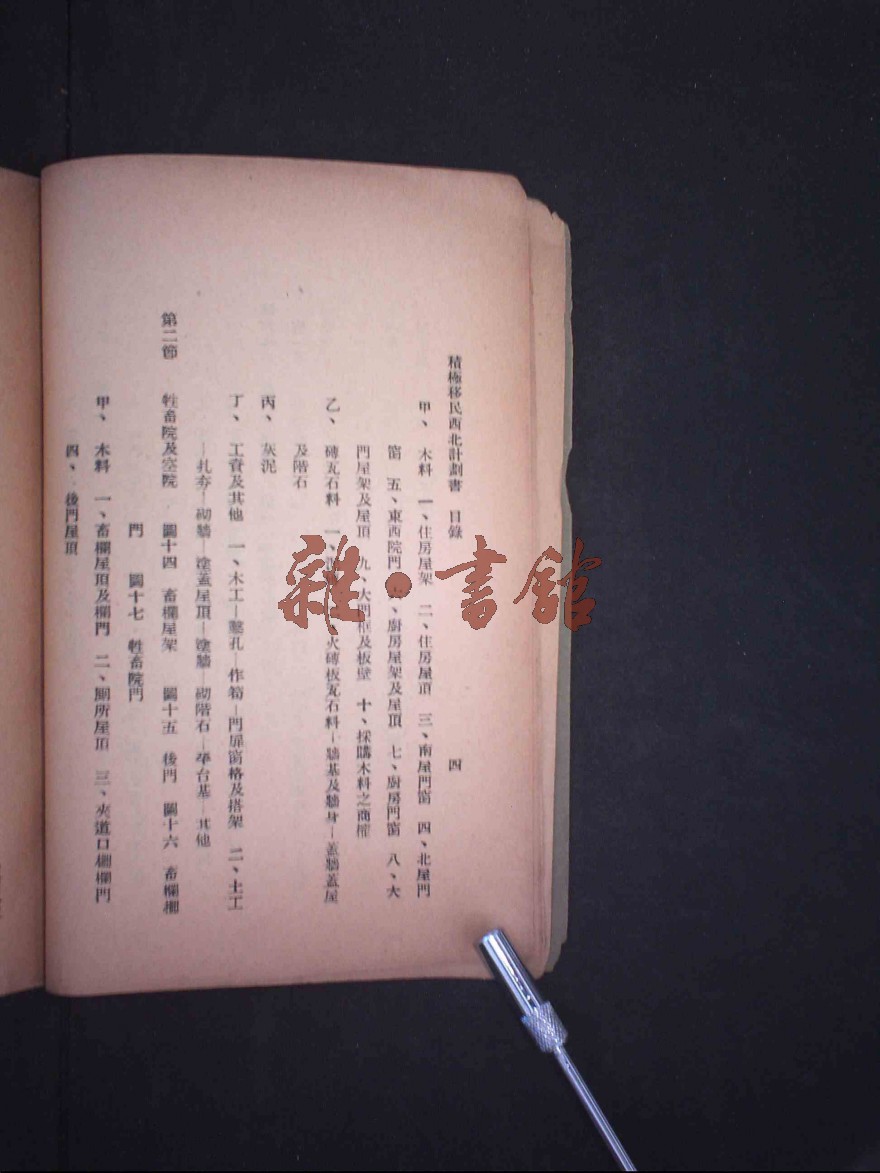 積極移民西北計劃書 目錄 四
甲、木料 一、住房屋架 二、住房屋頂 三、南屋門窗 四、北屋門
窗 五、東西院門 、廚房屋架及屋頂 七、廚房門窗 八、大
門屋架及屋頂 九、大門框及板壁 十、採購木料之商榷
乙、磚瓦石料 一、 火磚板瓦石料—牆基及牆身—蓋牆蓋屋
及階石
丙、灰泥
丁、工資及其他 一、木工—鑿孔—作筍—門屏窗格及搭架 二、土工
—扎夯—砌牆—塗蓋屋頂—塗牆—砌階石—平台基—其他
第二節 牲畜院及空院 圖十四 畜欄屋架 圖十五 後門 圖十六 畜欄柵
門 圖十七 牲畜院門
甲、木料 一、畜欄屋頂及欄門 二、厠所屋頂 三、夾道口柵欄門
四、後門屋頂
雜·書館